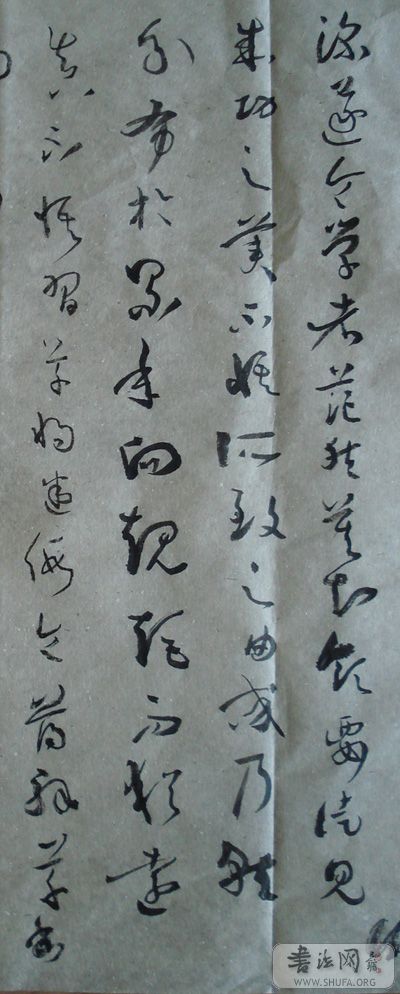 深遂令学者茫然莫知领要徒见
成功之美不悟所致之由或乃就
分布於累年向規矩而猶遠
真不悟習草將迷假令薄解草書
書法网
WWW.SHUFA.ORG